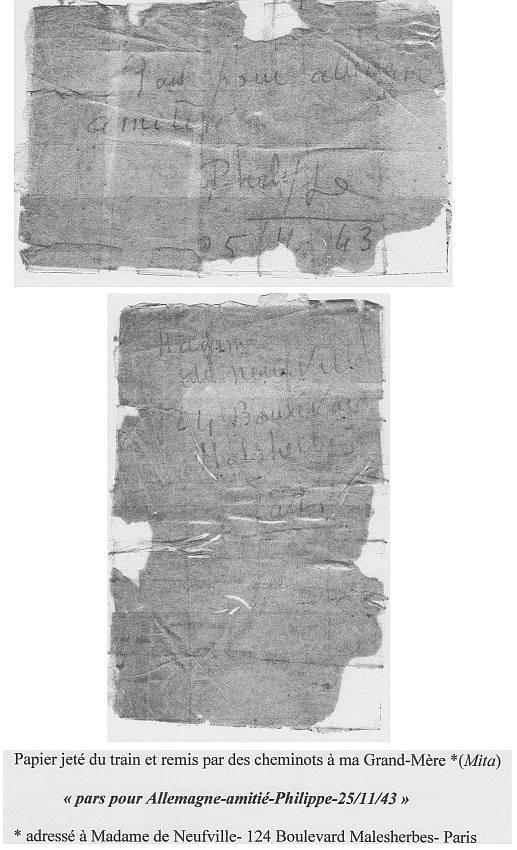 Pars pour allemagne
amitié
Philippe
5 11 43
Madame
de Neufville
24 Boulevard
Malsherbes
Paris
Papier jeté du train et remis par des cheminots à ma Grand-Mère *(Mita)
« pars pour Allemagne-amitié-Philippe-25/11/43 »
* adressé à Madame de Neufville- 124 Boulevard Malesherbes- Paris